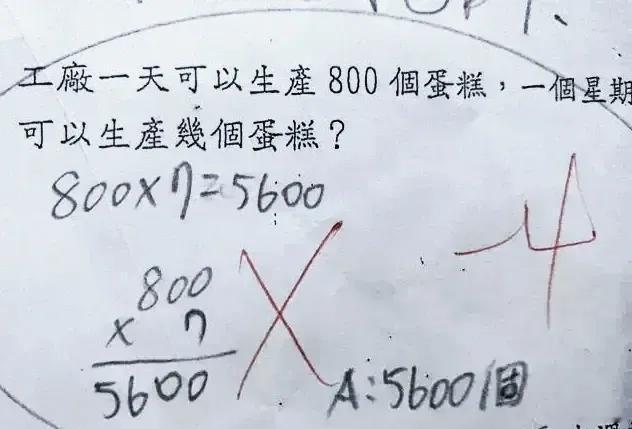 工廠一天可以生產 800 個蛋糕，一個星期
可以生產幾個蛋糕？
800×7=5600
800
× 7
5600
-4
A:5600個